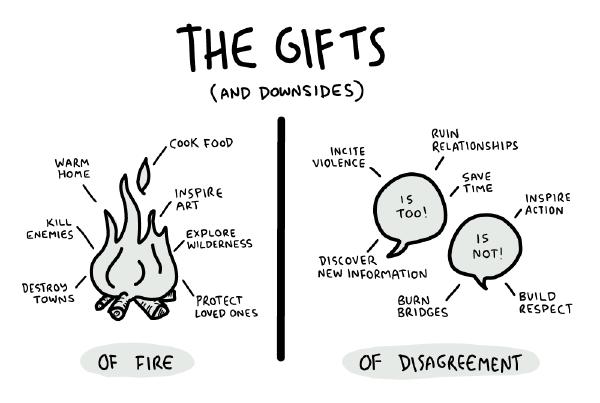 THE GIFTS
(AND DOWNSIDES)
COOK FOOD
WARM
HOME
INSPIRE
ART
KILL
ENEMIES
EXPLORE
WILDERNESS
DESTROY
TOWNS
PROTECT
LOVED ONES
OF FIRE
RUIN
RELATIONSHIPS
INCITE
VIOLENCE
SAVE
TIME
IS
TOO!
INSPIRE
ACTION
IS
NOT!
DISCOVER
NEW INFORMATION
BURN
BRIDGES
BUILD
RESPECT
OF DISAGREEMENT